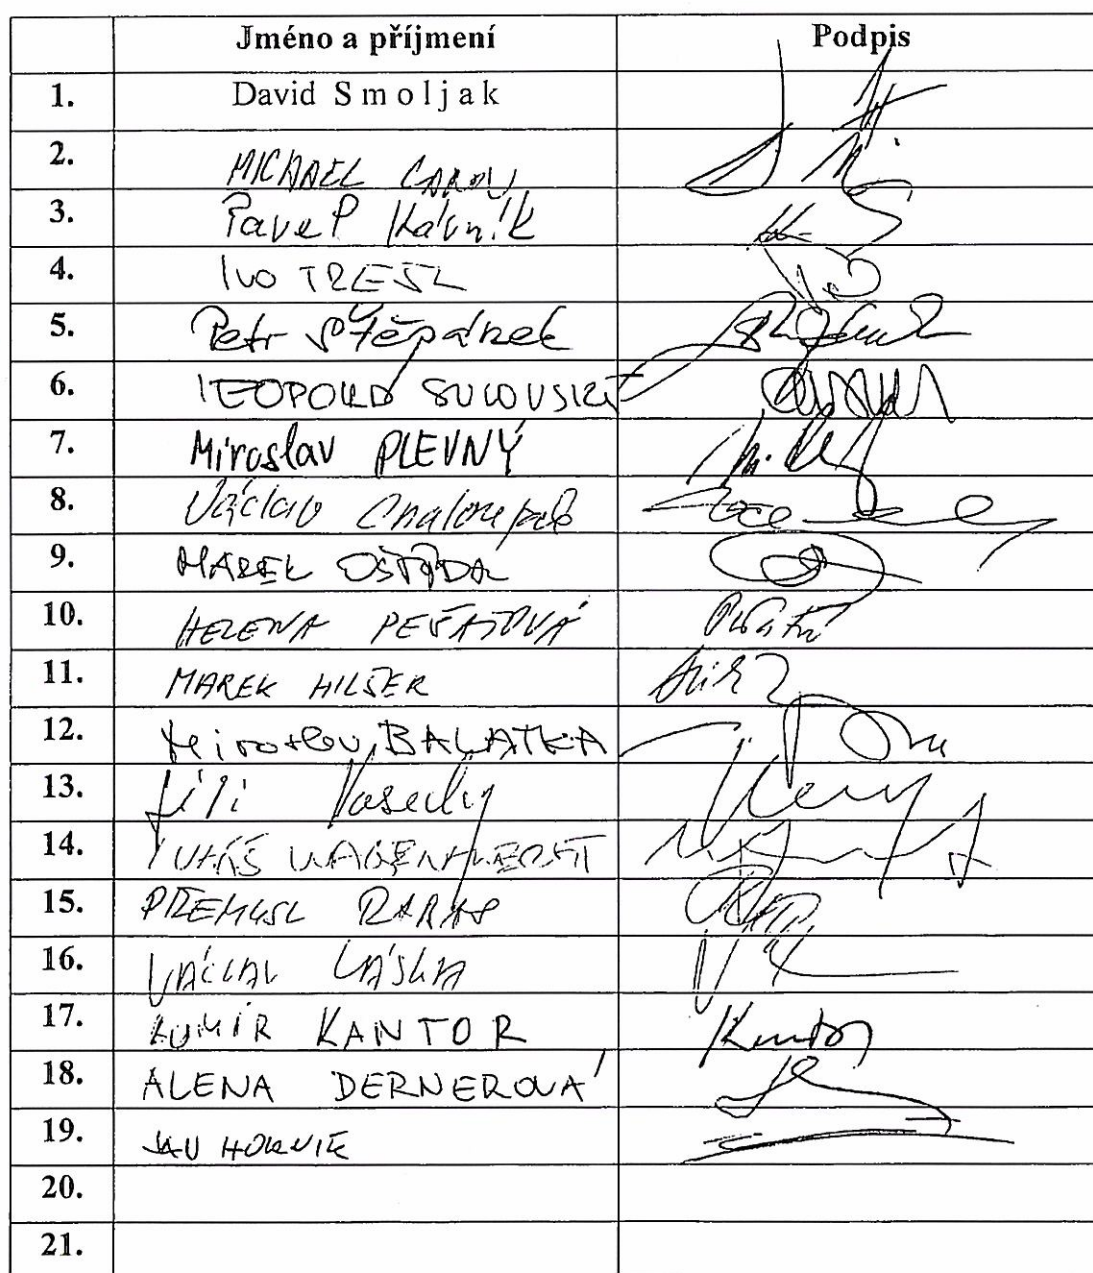 Jméno a příjmení Podpis
1. David Smoljak
2. MICHAEL CANOV
3. Pavel Kárník
4. IVO TRESL
5. Petr Štěpánek
6. LEOPOLD SULOVSKÝ
7. Miroslav PLEVNÝ
8. Václav Chaloupek
9. MAREK OŠŤÁDAL
10. HELENA PEŠATOVÁ
11. MAREK HILŠER
12. Miroslav BALATKA
13. Jiří Vosecký
14. LUKÁŠ WAGENKNECHT
15. PŘEMYSL RABAS
16. VÁCLAV LÁSKA
17. LUMÍR KANTOR Kantor
18. ALENA DERNEROVÁ
19. JAN HORNÍK
20.
21.